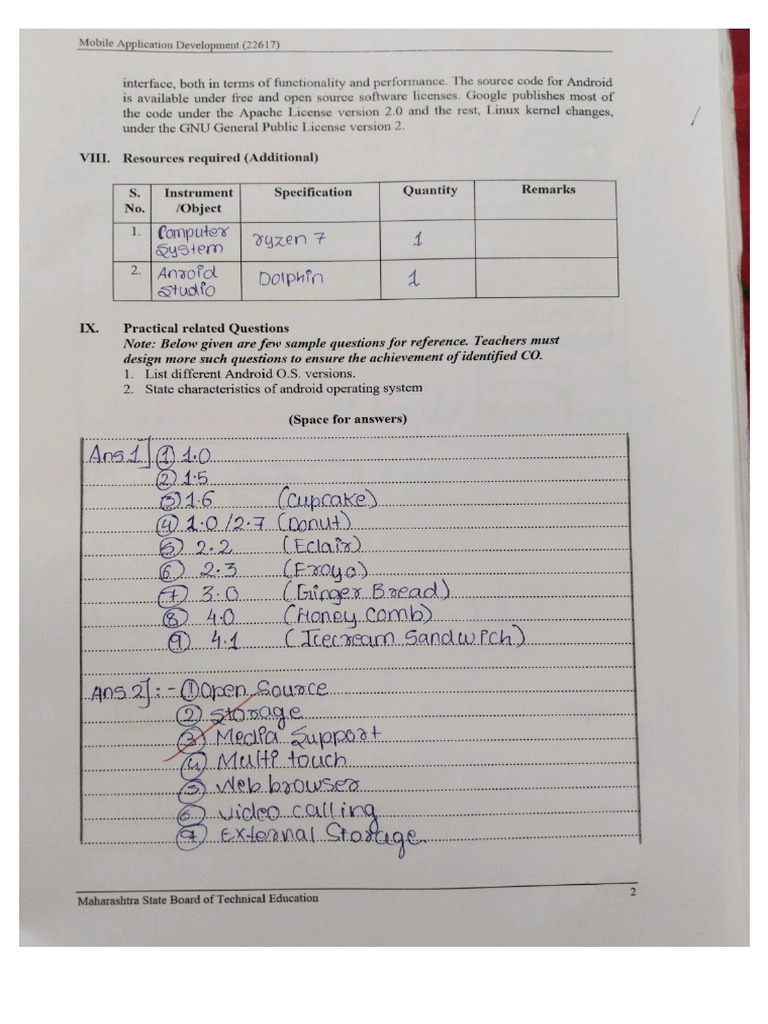 Mobile Application Development (22617)
interface, both in terms of functionality and performance. The source code for Android
is available under free and open source software licenses. Google publishes most of
the code under the Apache License version 2.0 and the rest, Linux kernel changes,
under the GNU General Public License version 2.
VIII. Resources required (Additional)
S. No. Instrument /Object Specification Quantity Remarks
1. Computer System ryzen 7 1
2. Anroid Studio Dolphin 1
IX. Practical related Questions
Note: Below given are few sample questions for reference. Teachers must
design more such questions to ensure the achievement of identified CO.
1. List different Android O.S. versions.
2. State characteristics of android operating system
(Space for answers)
Ans 1] ① 1.0
② 1.5
③ 1.6 (Cupcake)
④ 1.0/2.7 (Donut)
⑤ 2.2 (Eclair)
⑥ 2.3 (Froyo)
⑦ 3.0 (Ginger Bread)
⑧ 4.0 (Honey Comb)
⑨ 4.1 (Icecream Sandwich)
Ans 2] :- ① Open Source
② Storage
③ Media Support
④ Multi touch
⑤ Web browser
⑥ Video calling
⑦ External Storage.
Maharashtra State Board of Technical Education
2